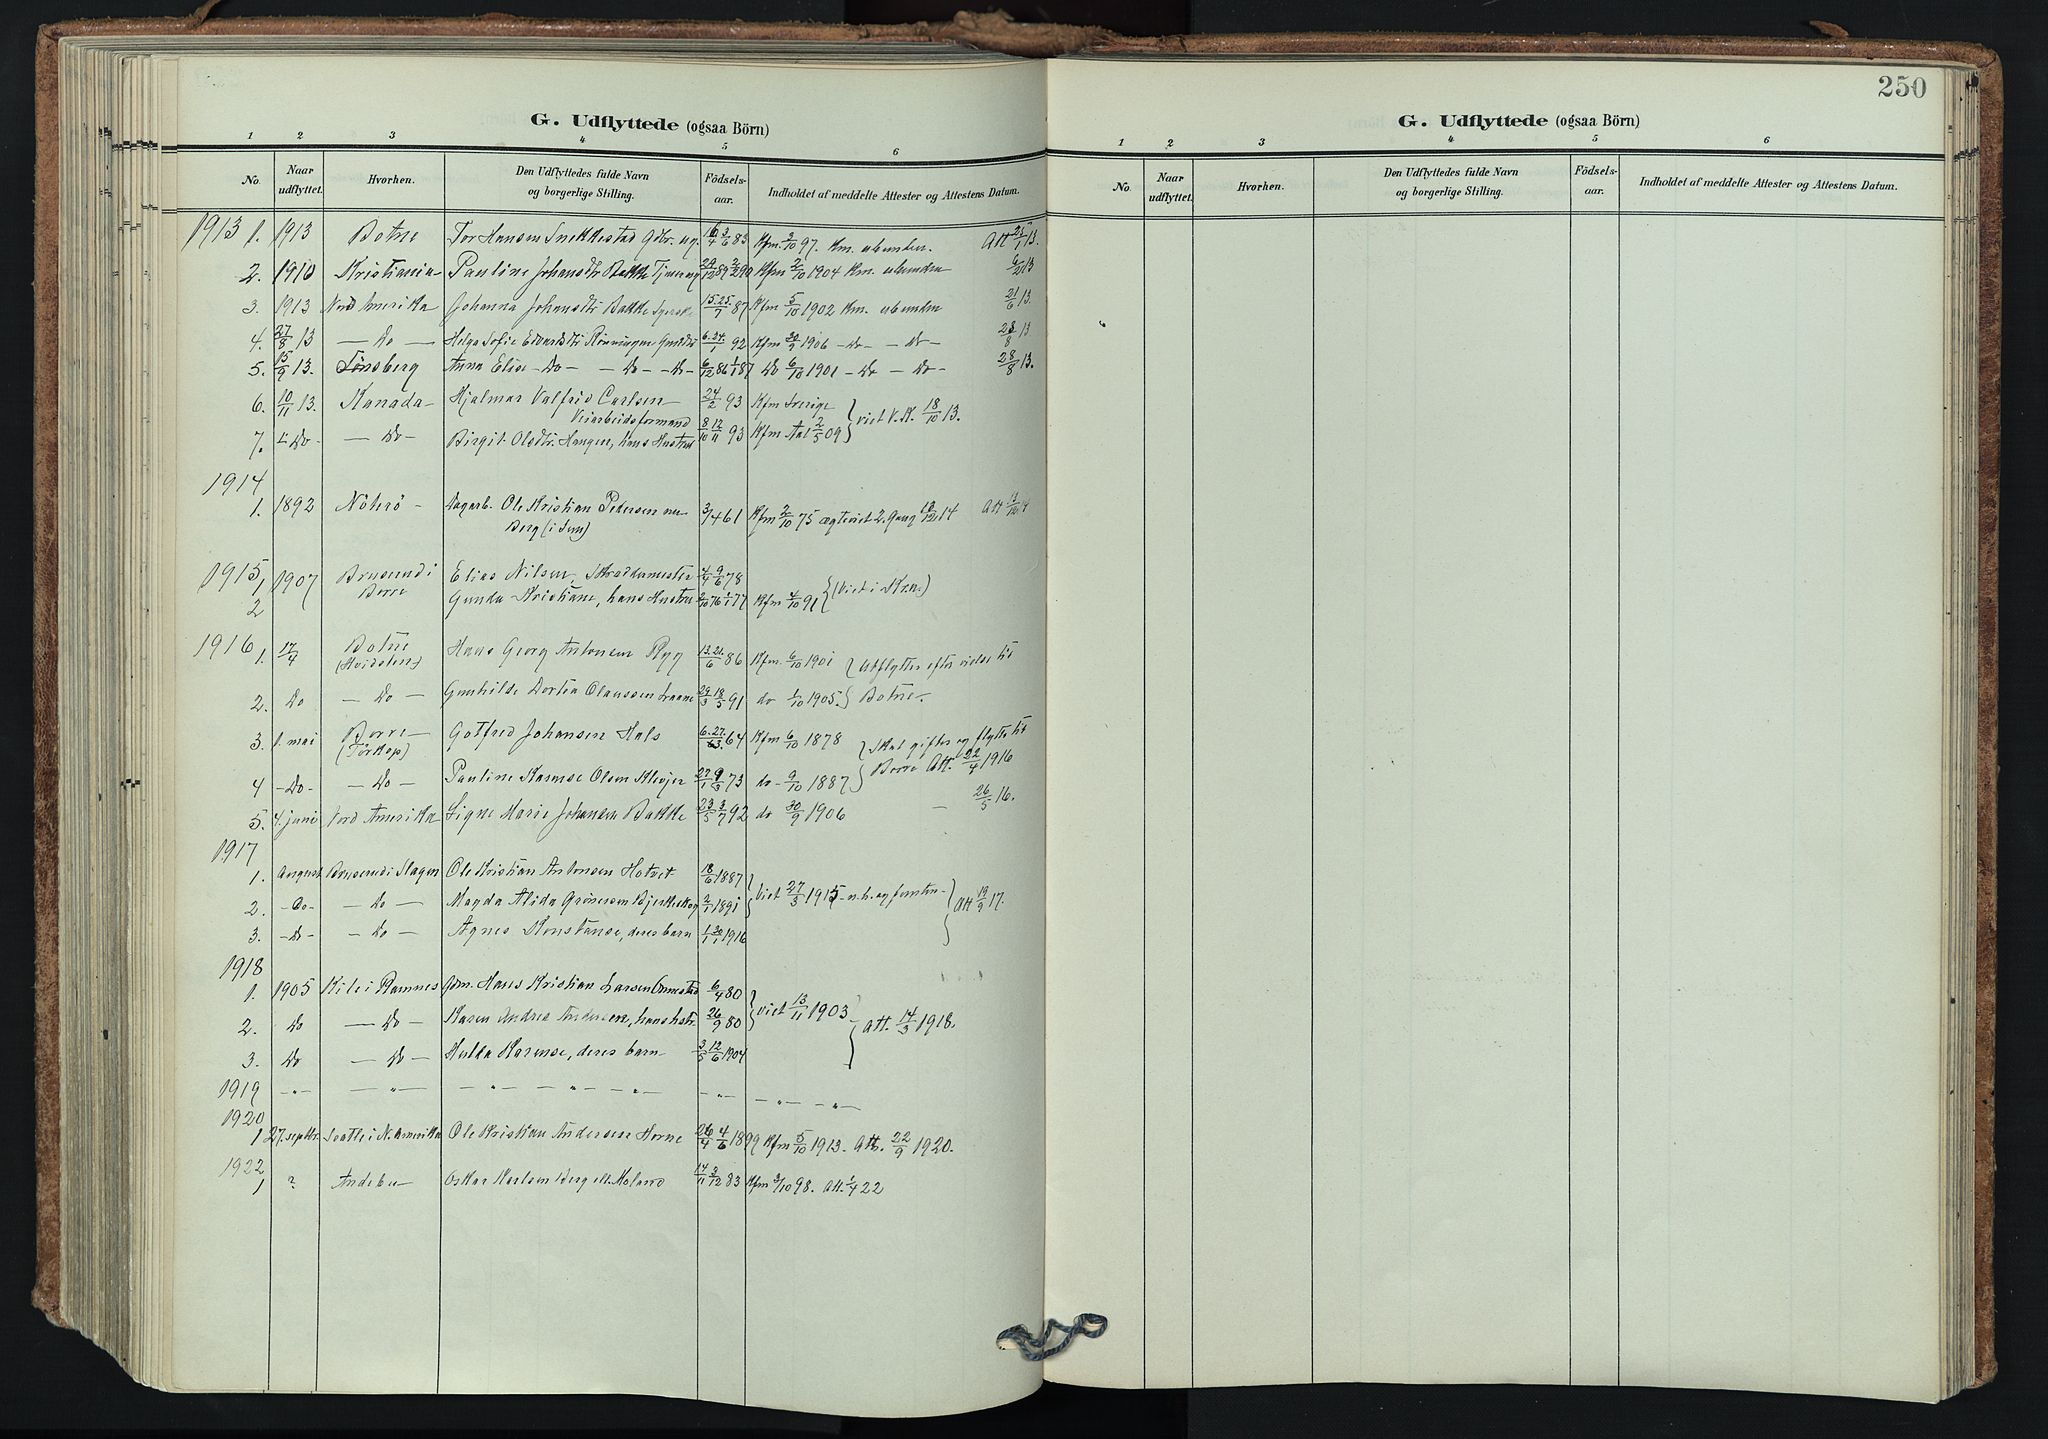 G. Udflyttede (ogsaa Börn)
1 2 3 4 5 6
No. Naar udflyttet. Hvorhen. Den Udflyttedes fulde Navn og borgerlige Stilling. Födsels-aar. Indholdet af meddelte Attester og Attestens Datum.
1913 1. 1913 Botne Tor Hansen Snekkestad Gdbr. ug. 16/4 3/6 83 Kfm. 3/10 97. Km. ubunden. Att 25/1 13.
2. 1910 Kristiania Pauline Johansdtr Bakke Tjen ug 29/12 89 2/2 90 Kfm 2/10 1904 Km. ubunden 6/2 13
3. 1913 Nord Amerika Johanna Johansdtr Bakke 15. 25./7 87 Kfm 5/10 1902 Km. ubunden 21/6 13.
4. 27/8 13 — Do — Helga Sofie Edvardsdtr Rönningen 6. 24./1 92 Kfm 30/9 1906 – Do – – Do – 28/8 13
5. 15/9 13. Tönsberg Anna Elise – Do – – Do – – Do – 6/12 86 1/1 87 Do 6/10 1901 – Do – Do – 28/8 13.
6. 10/11 13. Kanada Hjalmar Valfrid Carlsen 24/2 93 Kfm Sverige
Veiarbeidsformand } viet V.K. 18/10 13.
7. – Do – — Do — Birgit Olsdtr. Haugen, hans Hustru 8/10 12/11 93 Kfm Aal 2/5 09
1914
1. 1892 Nöterö Dagarb. Ole Kristian Petersen 3/4 61 Kfm 2/10 75 ægteviet 2. Gang 14 Att 14
Berg (i Sem)
1915 1 1907 Bruserud i Borre Elias Nilsen, Skræddermester 4/4 9/6 78
2 Gunda Kristiane, hans Hustru 76 1/1 77 Kfm 4/10 91 { (Viet i Kr.a.)
1916 1. 17/4 Botne (Hvidsten) Hans Georg Antonsen Rygg 13. 21./6 86 Kfm. 6/10 1901 { Udflytter efter vielse til
2. Do — Do — Gunhilde Dortea Olaussen 29/3 18/5 91 do 1/10 1905. } Botne –
3. 1. mai Borre (Tørkop) Gotfred Johansen Hals 6. 27. 64 Kfm 6/10 1878 { Skal giftes og flytte til
4 – Do – — Do — Pauline Karense Olsen Klevjer 27/1 9/3 73 do – 9/10 1887 } Borre Att. 22/4 1916
5. 4. juni Nord Amerika Signe Marie Johansen Bakke 23/5 3/7 92 do 30/9 1906 – 26/5 16.
1917
1. August Bruserud i Slagen Ole Kristian Antonsen Hotvet 18/6 1887 } Viet 27/3 1915
2. – Do – — Do — Magda Alida Grönersen Bjerkeskog 2/1 1891 } Att 19/9 17.
3. – Do – — Do — Agnes Konstanse, deres barn 1/1 30/1 1916
1918
1. 1905 Kile i Ramnes Gdm. Hans Kristian Larsen 6/4 80 } viet 13/11 1903
2. Do — Do — Karen Andrea Andersen, hans hstr. 26/9 80 } Att. 14/3 1918.
3. Do — Do — Hulda Karense, deres barn 3/5 12/6 1904
1919 – „ – — „ — — „ — — „ — – „ – – „ – – „ – – „ –
1920
1 27. septbr. Seattle i N. Amerika Ole Kristian Andersen Horne 26/4 4/6 1899 Kfm 5/10 1913. Att. 22/9 1920.
1922
1 ? Andebu Oskar Karlsen Berg ell. Moland 14/11 2/12 83 Kfm 3/10 98. Att. 1/4 22
250
G. Udflyttede (ogsaa Börn)
1 2 3 4 5 6
No. Naar udflyttet. Hvorhen. Den Udflyttedes fulde Navn og borgerlige Stilling. Födsels-aar. Indholdet af meddelte Attester og Attestens Datum.